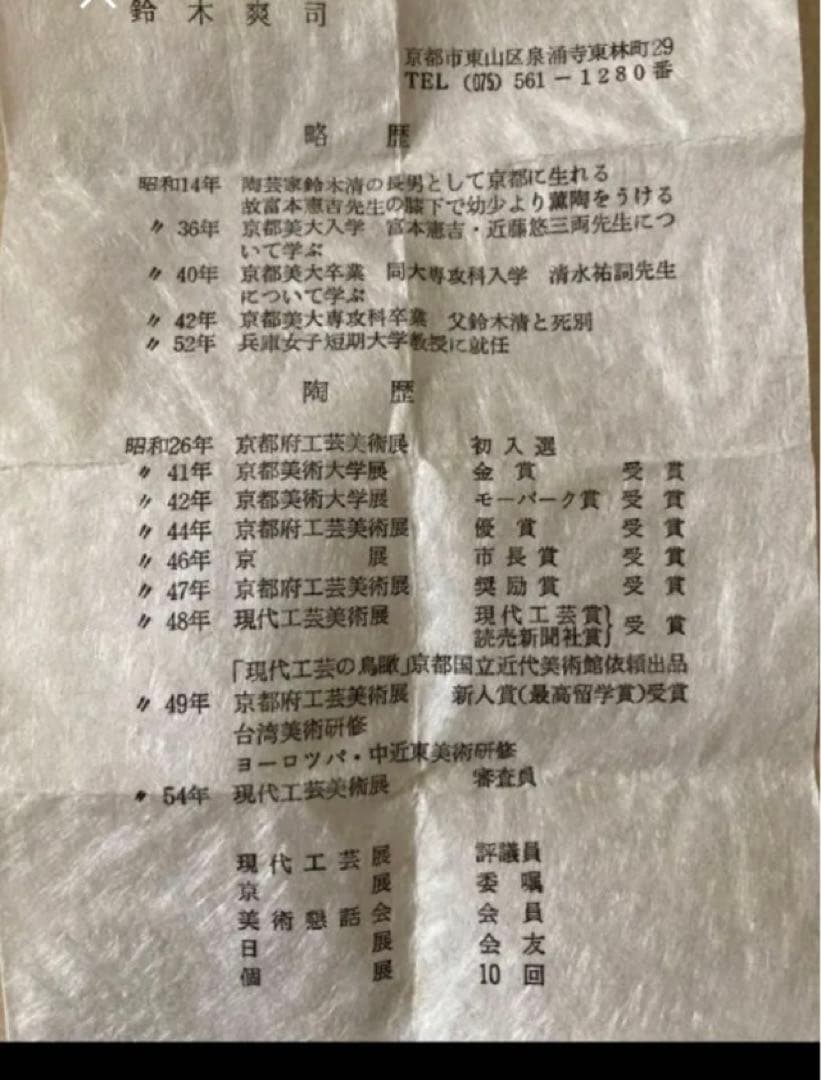 鈴木爽司
京都市東山区泉涌寺東林町29
TEL (075) 561-1280番
略歴
昭和14年 陶芸家鈴木清の長男として京都に生れる
故富本憲吉先生の膝下で幼少より薫陶をうける
〃 36年 京都美大入学 富本憲吉・近藤悠三両先生につ
いて学ぶ
〃 40年 京都美大卒業 同大専攻科入学 清水祐詞先生
について学ぶ
〃 42年 京都美大専攻科卒業 父鈴木清と死別
〃 52年 兵庫女子短期大学教授に就任
陶歴
昭和26年 京都府工芸美術展 初入選
〃 41年 京都美術大学展 金賞 受賞
〃 42年 京都美術大学展 モーパーク賞 受賞
〃 44年 京都府工芸美術展 優賞 受賞
〃 46年 京展 市長賞 受賞
〃 47年 京都府工芸美術展 奨励賞 受賞
〃 48年 現代工芸美術展 現代工芸賞}
読売新聞社賞} 受賞
「現代工芸の鳥瞰」京都国立近代美術館依頼出品
〃 49年 京都府工芸美術展 新人賞(最高留学賞)受賞
台湾美術研修
ヨーロツパ・中近東美術研修
〃 54年 現代工芸美術展 審査員
現代工芸展 評議員
京展 委嘱
美術懇話会 会員
日展 会友
個展 10回